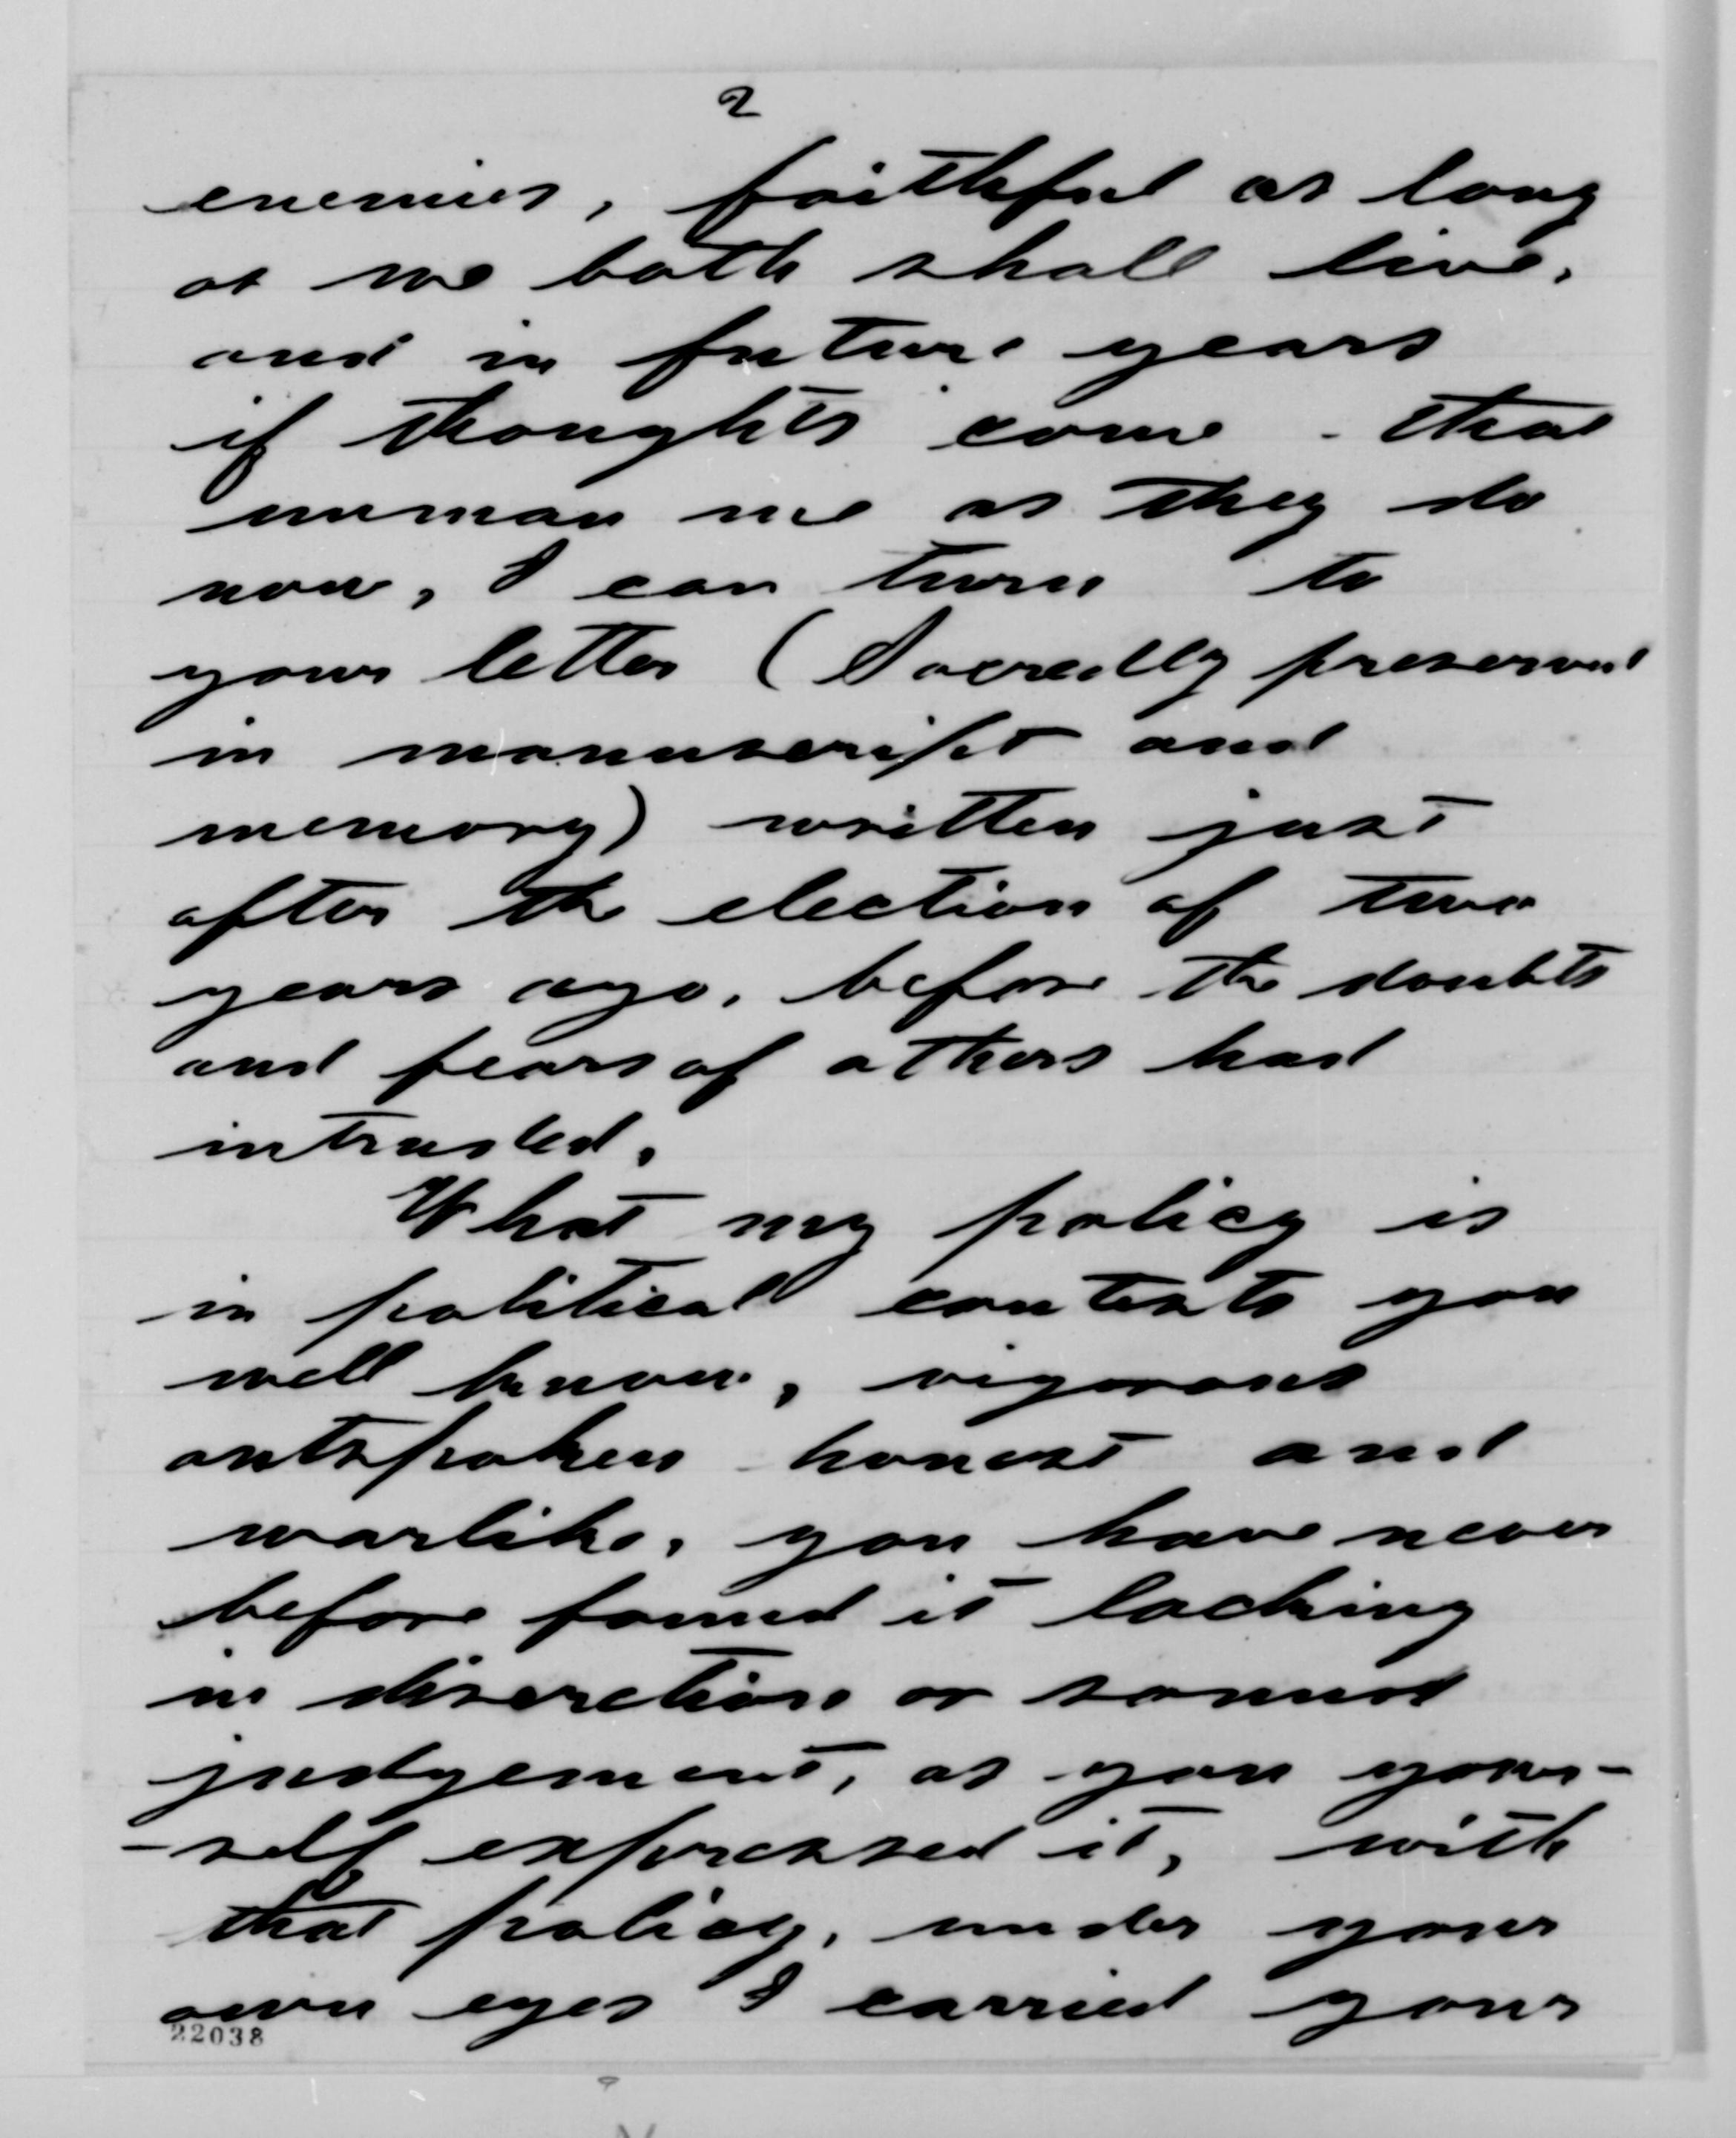 2
enemies, faithful as long
as we both shall live,
and in future years
if thoughts come - that
unman me as they do
now, I can turn to
your letter (Sacredly preserved
in manuscript and
memory) written just
after the election of two
years ago, before the doubts
and fears of others had
intruded.
What my policy is
in political contests you
well know, vigorous
outspoken honest and
warlike, you have never
before found it lacking
in discretion or sound
judgement, as you your-
-self expressed it, with
that policy, under your
own eyes I carried your
22038